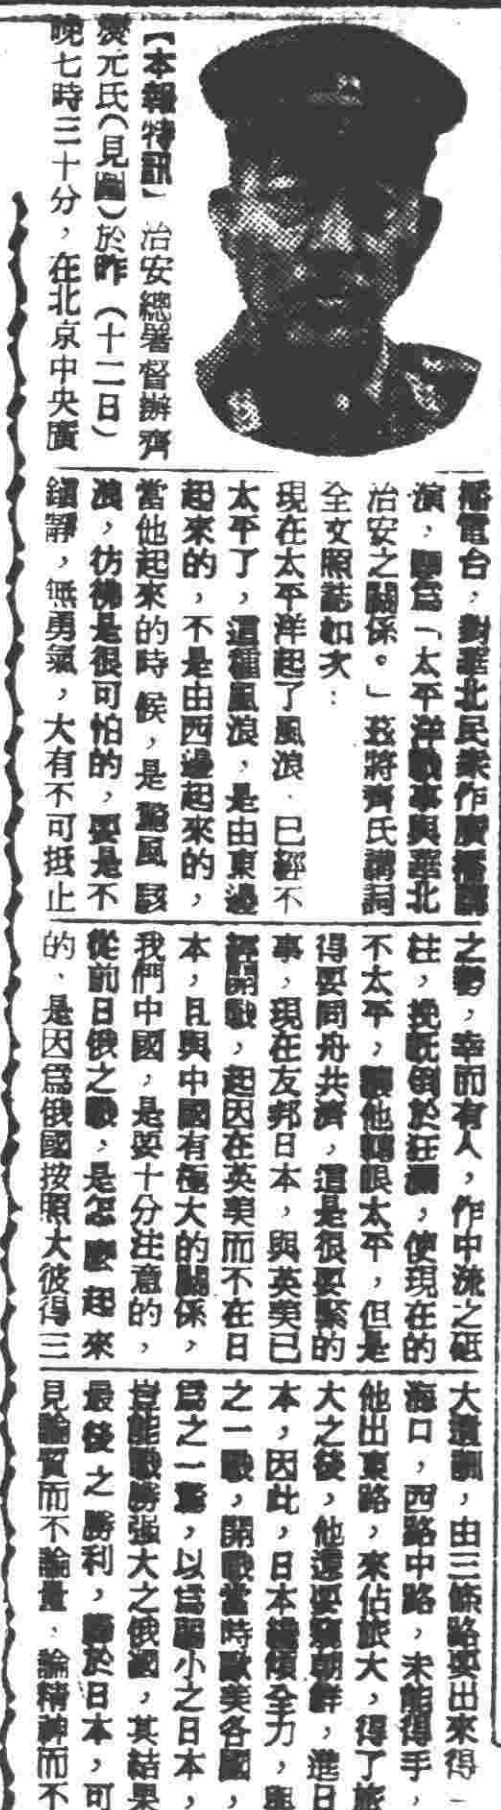 【本報特訊】治安總署督辦齊
燮元氏(見圖)於昨(十二日)
晚七時三十分，在北京中央廣
播電台，對華北民衆作廣播講
演，題爲「太平洋戰事與華北
治安之關係。」茲將齊氏講詞
全文照誌如次：
現在太平洋起了風浪，已經不
太平了，這種風浪，是由東邊
起來的，不是由西邊起來的，
當他起來的時候，是驚風駭
浪，彷彿是很可怕的，要是不
鎮靜，無勇氣，大有不可抵止
之勢，幸而有人，作中流之砥
柱，挽旣倒於狂瀾，使現在的
不太平，讓他轉眼太平，但是
得要同舟共濟，這是很要緊的
事，現在友邦日本，與英美已
經開戰，起因在英美而不在日
本，且與中國有極大的關係，
我們中國，是要十分注意的，
從前日俄之戰，是怎麼起來
的、是因爲俄國按照大彼得三
大遺訓，由三條路要出來得一
海口，西路中路，未能得手，
他出東路，來佔旅大，得了旅
大之後，他還要窺朝鮮，進日
本，因此，日本纔傾全力，與
之一戰，開戰當時歐美各國，
爲之一驚，以爲弱小之日本，
豈能戰勝强大之俄國，其結果
最後之勝利，歸於日本，可
見論質而不論量，論精神而不